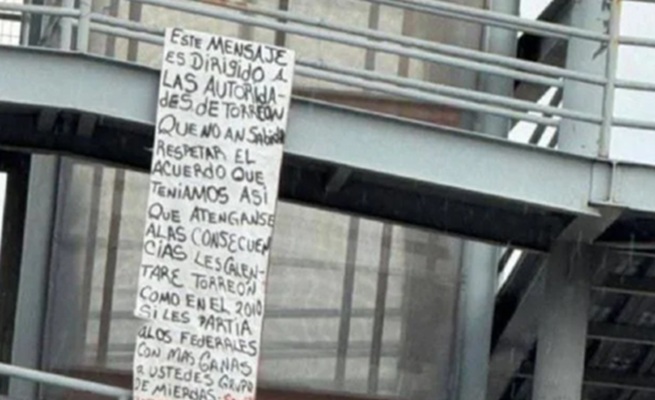 ESTE MENSAJE
ES DIRIGIDO A
LAS AUTORIDA-
DES DE TORREÓN
QUE NO AN Sabido
RESPETAR EL
ACUERDO QUE
TENIAMOS ASI
QUE ATENGANSE
ALAS CONSECUEN
CIAS LES CALEN-
TARE TORREÓN
COMO EN EL 2010
SI LES PARTIA
ALOS FEDERALES
CON MAS GANAS
A USTEDES GRUPO
DE MIERDAS.